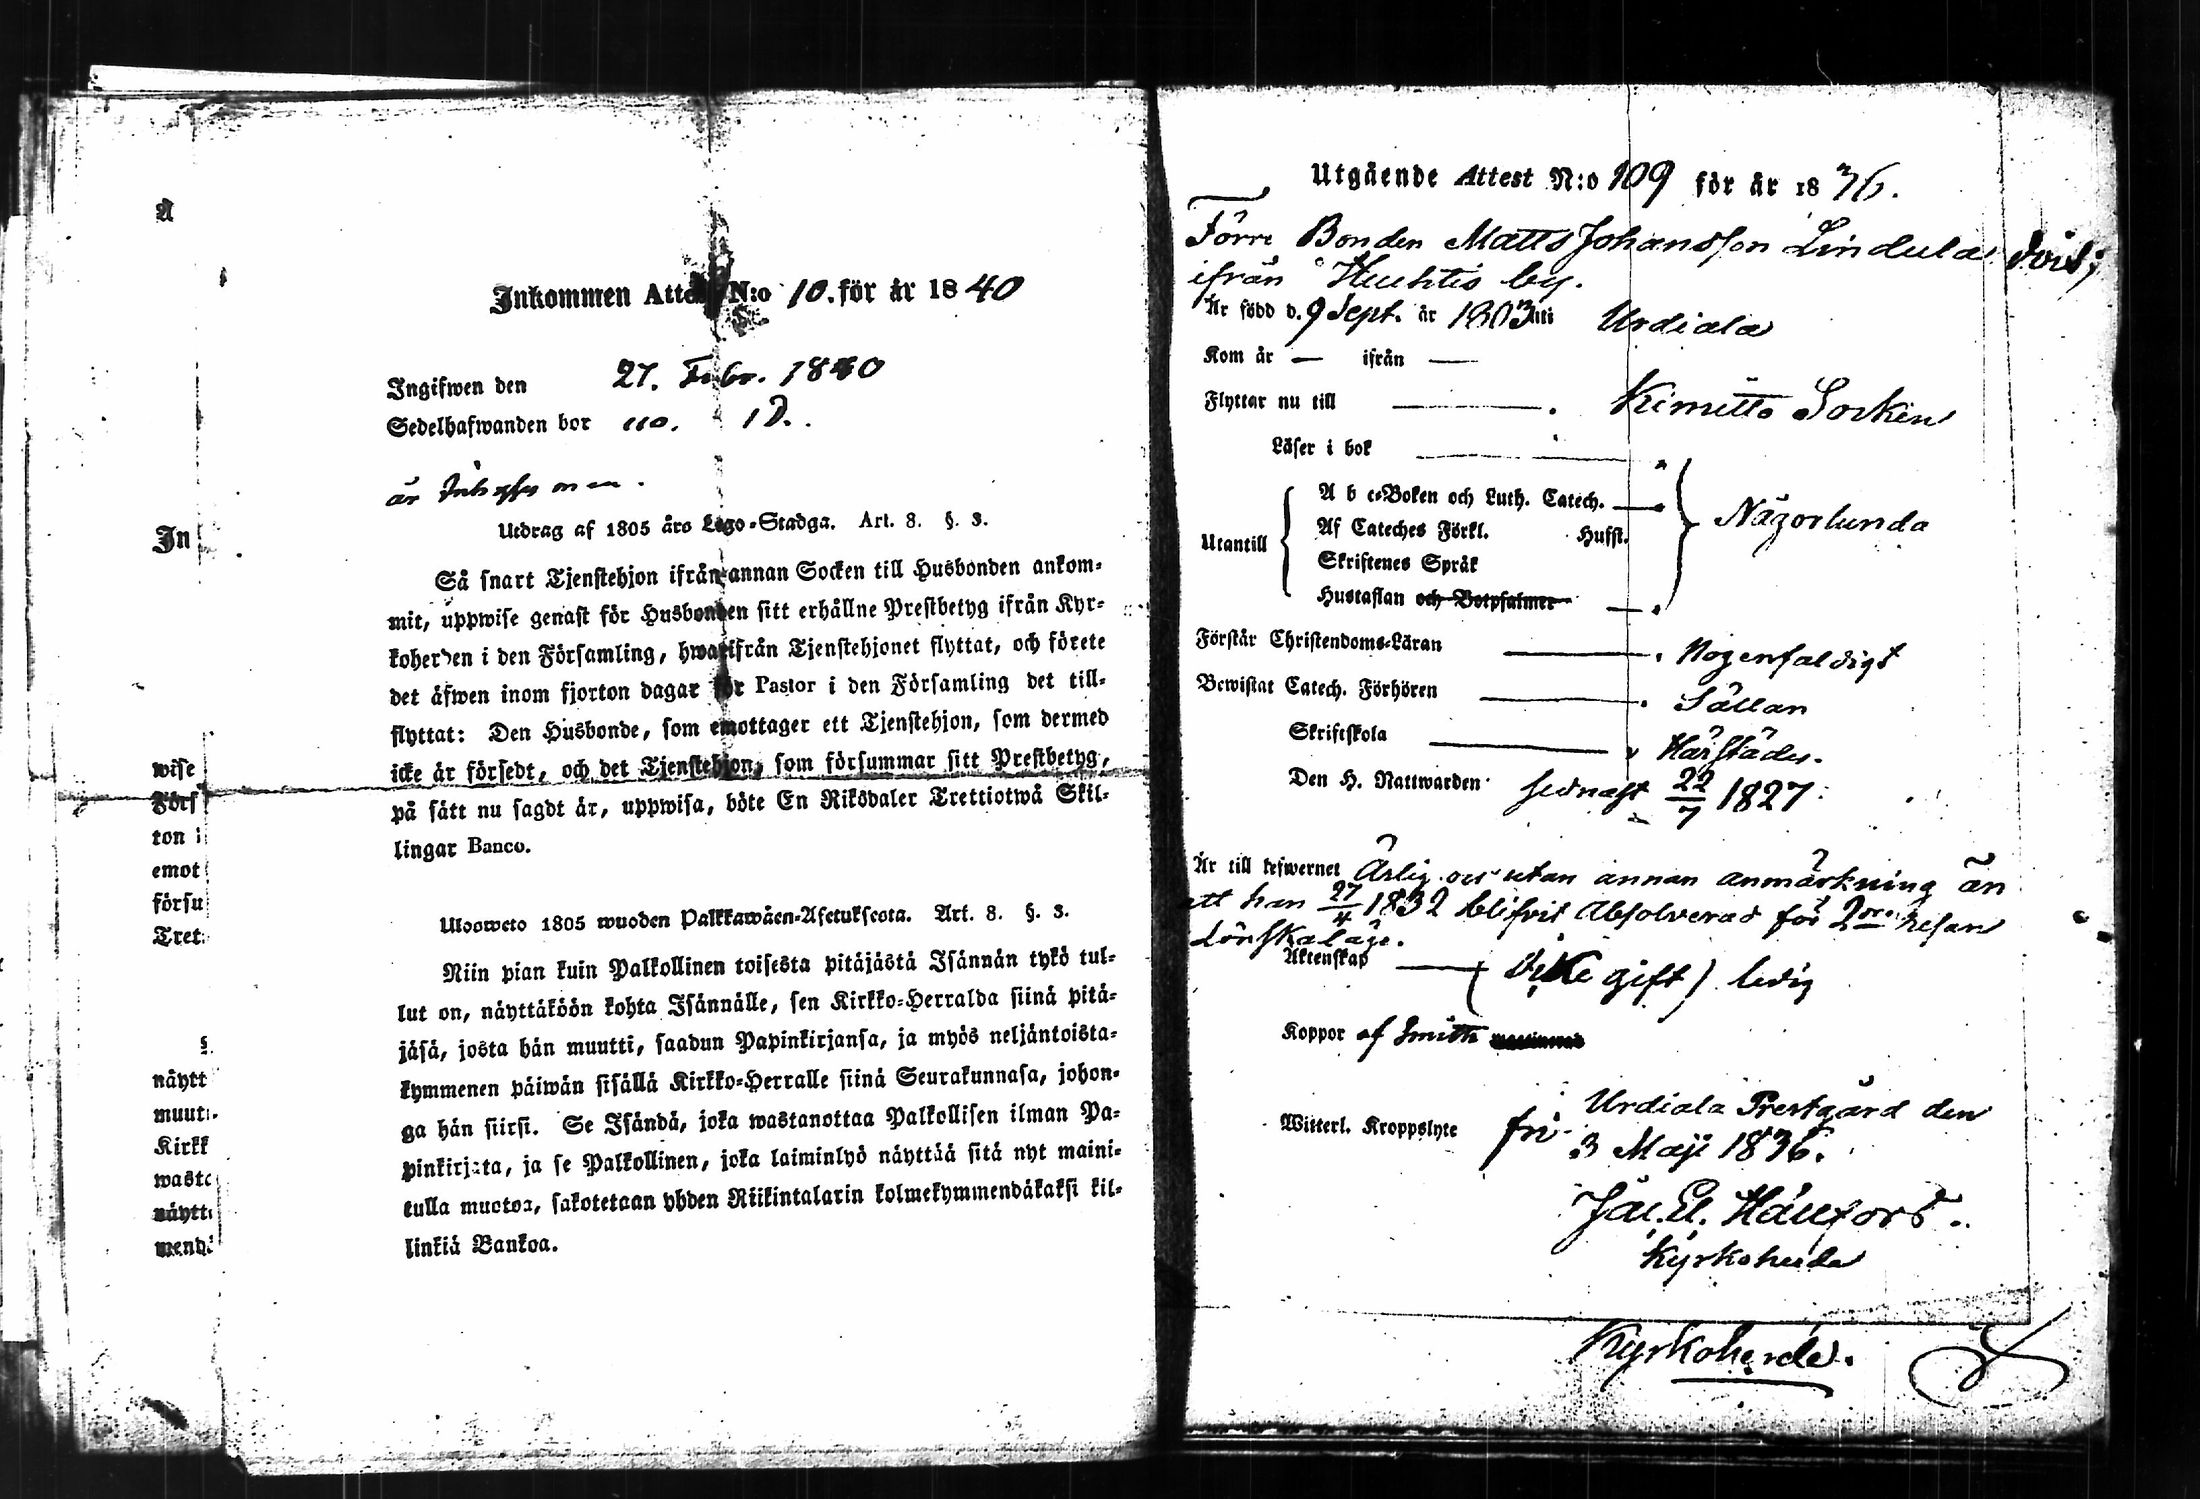 A
In
wise
Förs
ton i
emot
försu
Tret
§.
näytt
muut
Kirkk
wasta
näytt
mendä
Inkommen Attest N:o 10. för år 1840
Ingifwen den 27. Febr. 1840
Sedelhafwanden bor uto. i D.
är
Utdrag af 1805 års Lego-Stadga. Art. 8. §. 3.
Så snart Tjenstehjon ifrån annan Socken till Husbonden ankom-
mit, uppwise genast för Husbonden sitt erhållne Prestbetyg ifrån Kyr-
koherden i den Församling, hwarifrån Tjenstehjonet flyttat, och förete
det äfwen inom fjorton dagar för Pastor i den Församling det till-
flyttat: Den Husbonde, som emottager ett Tjenstehjon, som dermed
icke är försedt, och det Tjenstehjon, som försummar sitt Prestbetyg,
på sätt nu sagdt är, uppwisa, böte En Riksdaler Trettiotwå Skil-
lingar Banco.
Ulosweto 1805 wuoden Palkkawäen-Asetuksesta. Art. 8. §. 3.
Niin pian kuin Palkollinen toisesta pitäjästä Isännän tykö tul-
lut on, näyttäköön kohta Isännälle, sen Kirkko-Herralda siinä pitä-
jäsä, josta hän muutti, saadun Papinkirjansa, ja myös neljäntoista-
kymmenen päiwän sisällä Kirkko-Herralle siinä Seurakunnasa, johon-
ga hän siirsi. Se Isändä, joka wastanottaa Palkollisen ilman Pa-
pinkirjata, ja se Palkollinen, joka laiminlyö näyttää sitä nyt maini-
tulla muotoa, sakotetaan yhden Riikintalarin kolmekymmendäkaksi kil-
linkiä Bankoa.
Utgående Attest N:o 109 för år 1836.
Förre Bonden Matts Johansson Lindula
ifrån Huhtis by.
Är född d. 9 Sept. år 1803 uti Urdiala
Kom år — ifrån —
Flyttar nu till Kimitto Socken
Läser i bok
A b c-Boken och Luth. Catech.
Af Cateches Förkl. Hufst.
Utantill Någorlunda
Skriftenes Språk
Hustaflan och Botpsalmer
Förstår Christendoms-Läran Nogenfaldigt
Bewistat Catech. Förhören Sällan
Skriftskola Härstädes.
Den H. Nattwarden sednast 22/7 1827
Är till lefwernet Ärlig och utan annan anmärkning än
att han 27/4 1832 blifvit Absolverad för 2dra resan
Lönskaläge.
Äktenskap (Icke gift) ledig
Koppor af Smitta
Witterl. Kroppslyte fri
Urdiala Prestgård den
3 Maji 1836.
Jac. El. Hällfors.
Kyrkoherde
Kyrkoherde.